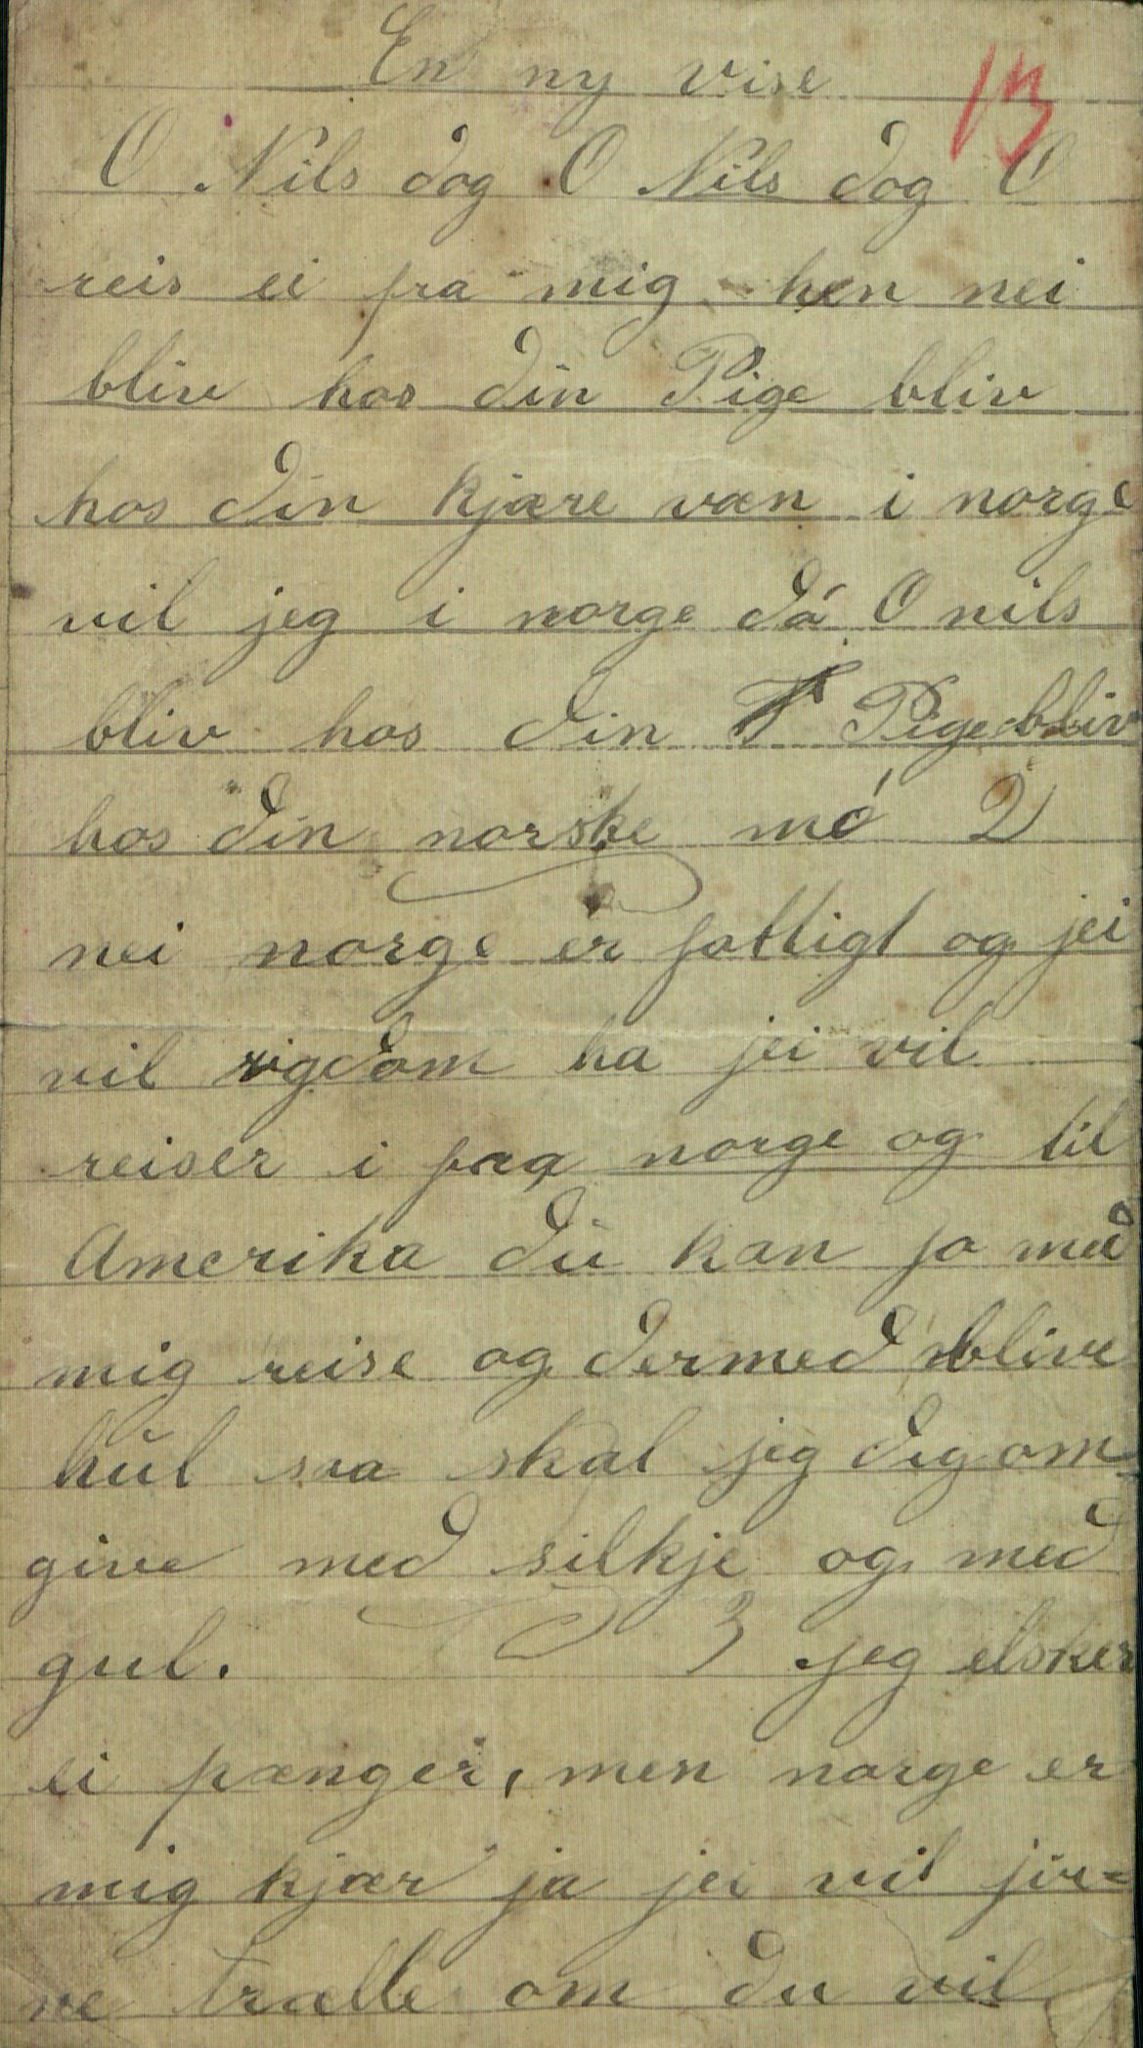 En ny vise
13
O Nils dog O Nils dog O
reis ei fra mig hen nei
bliv hos din Pige bliv
hos din kjære væn i norge
vil jeg i norge dá O nils
bliv hos din Pige bliv
hos din norske mó 2
nei norge er fattigt og jei
vil rigdom ha jei vil
reiser i fra norge og til
Amerika dŭ kan jo med
mig reise og dermed blive
hŭl saa skal jeg dig om
give med silkje og med
gul. 3 jeg elsker
ei pænger, men norge er
mig kjær ja jei vil jir=
ne trælle om du vil